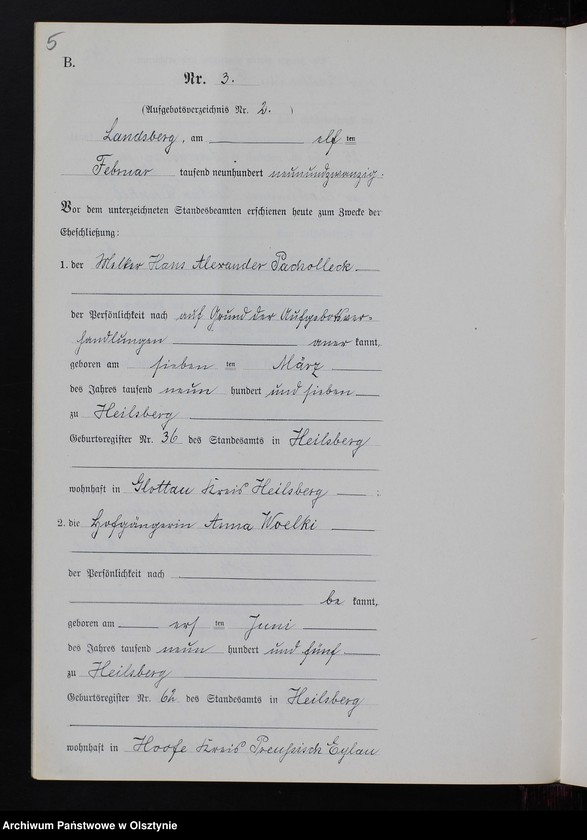 5
B.
Nr. 3.
(Aufgebotsverzeichnis Nr. 2. )
Landsberg, am elf ten
Februar tausend neunhundert neunundzwanzig.
Vor dem unterzeichneten Standesbeamten erschienen heute zum Zwecke der
Eheschließung:
1. der Melker Hans Alexander Pacholleck
der Persönlichkeit nach auf Grund der Aufgebotsver-
handlungen aner kannt,
geboren am sieben ten März
des Jahres tausend neun hundert und sieben
zu Heilsberg
Geburtsregister Nr. 36 des Standesamts in Heilsberg
wohnhaft in Glottau Kreis Heilsberg ;
2. die Hofgängerin Anna Woelki
der Persönlichkeit nach
be kannt,
geboren am ers ten Juni
des Jahres tausend neun hundert und fünf
zu Heilsberg
Geburtsregister Nr. 62 des Standesamts in Heilsberg
wohnhaft in Hoofe Kreis Preußisch Eylau
Archiwum Państwowe w Olsztynie